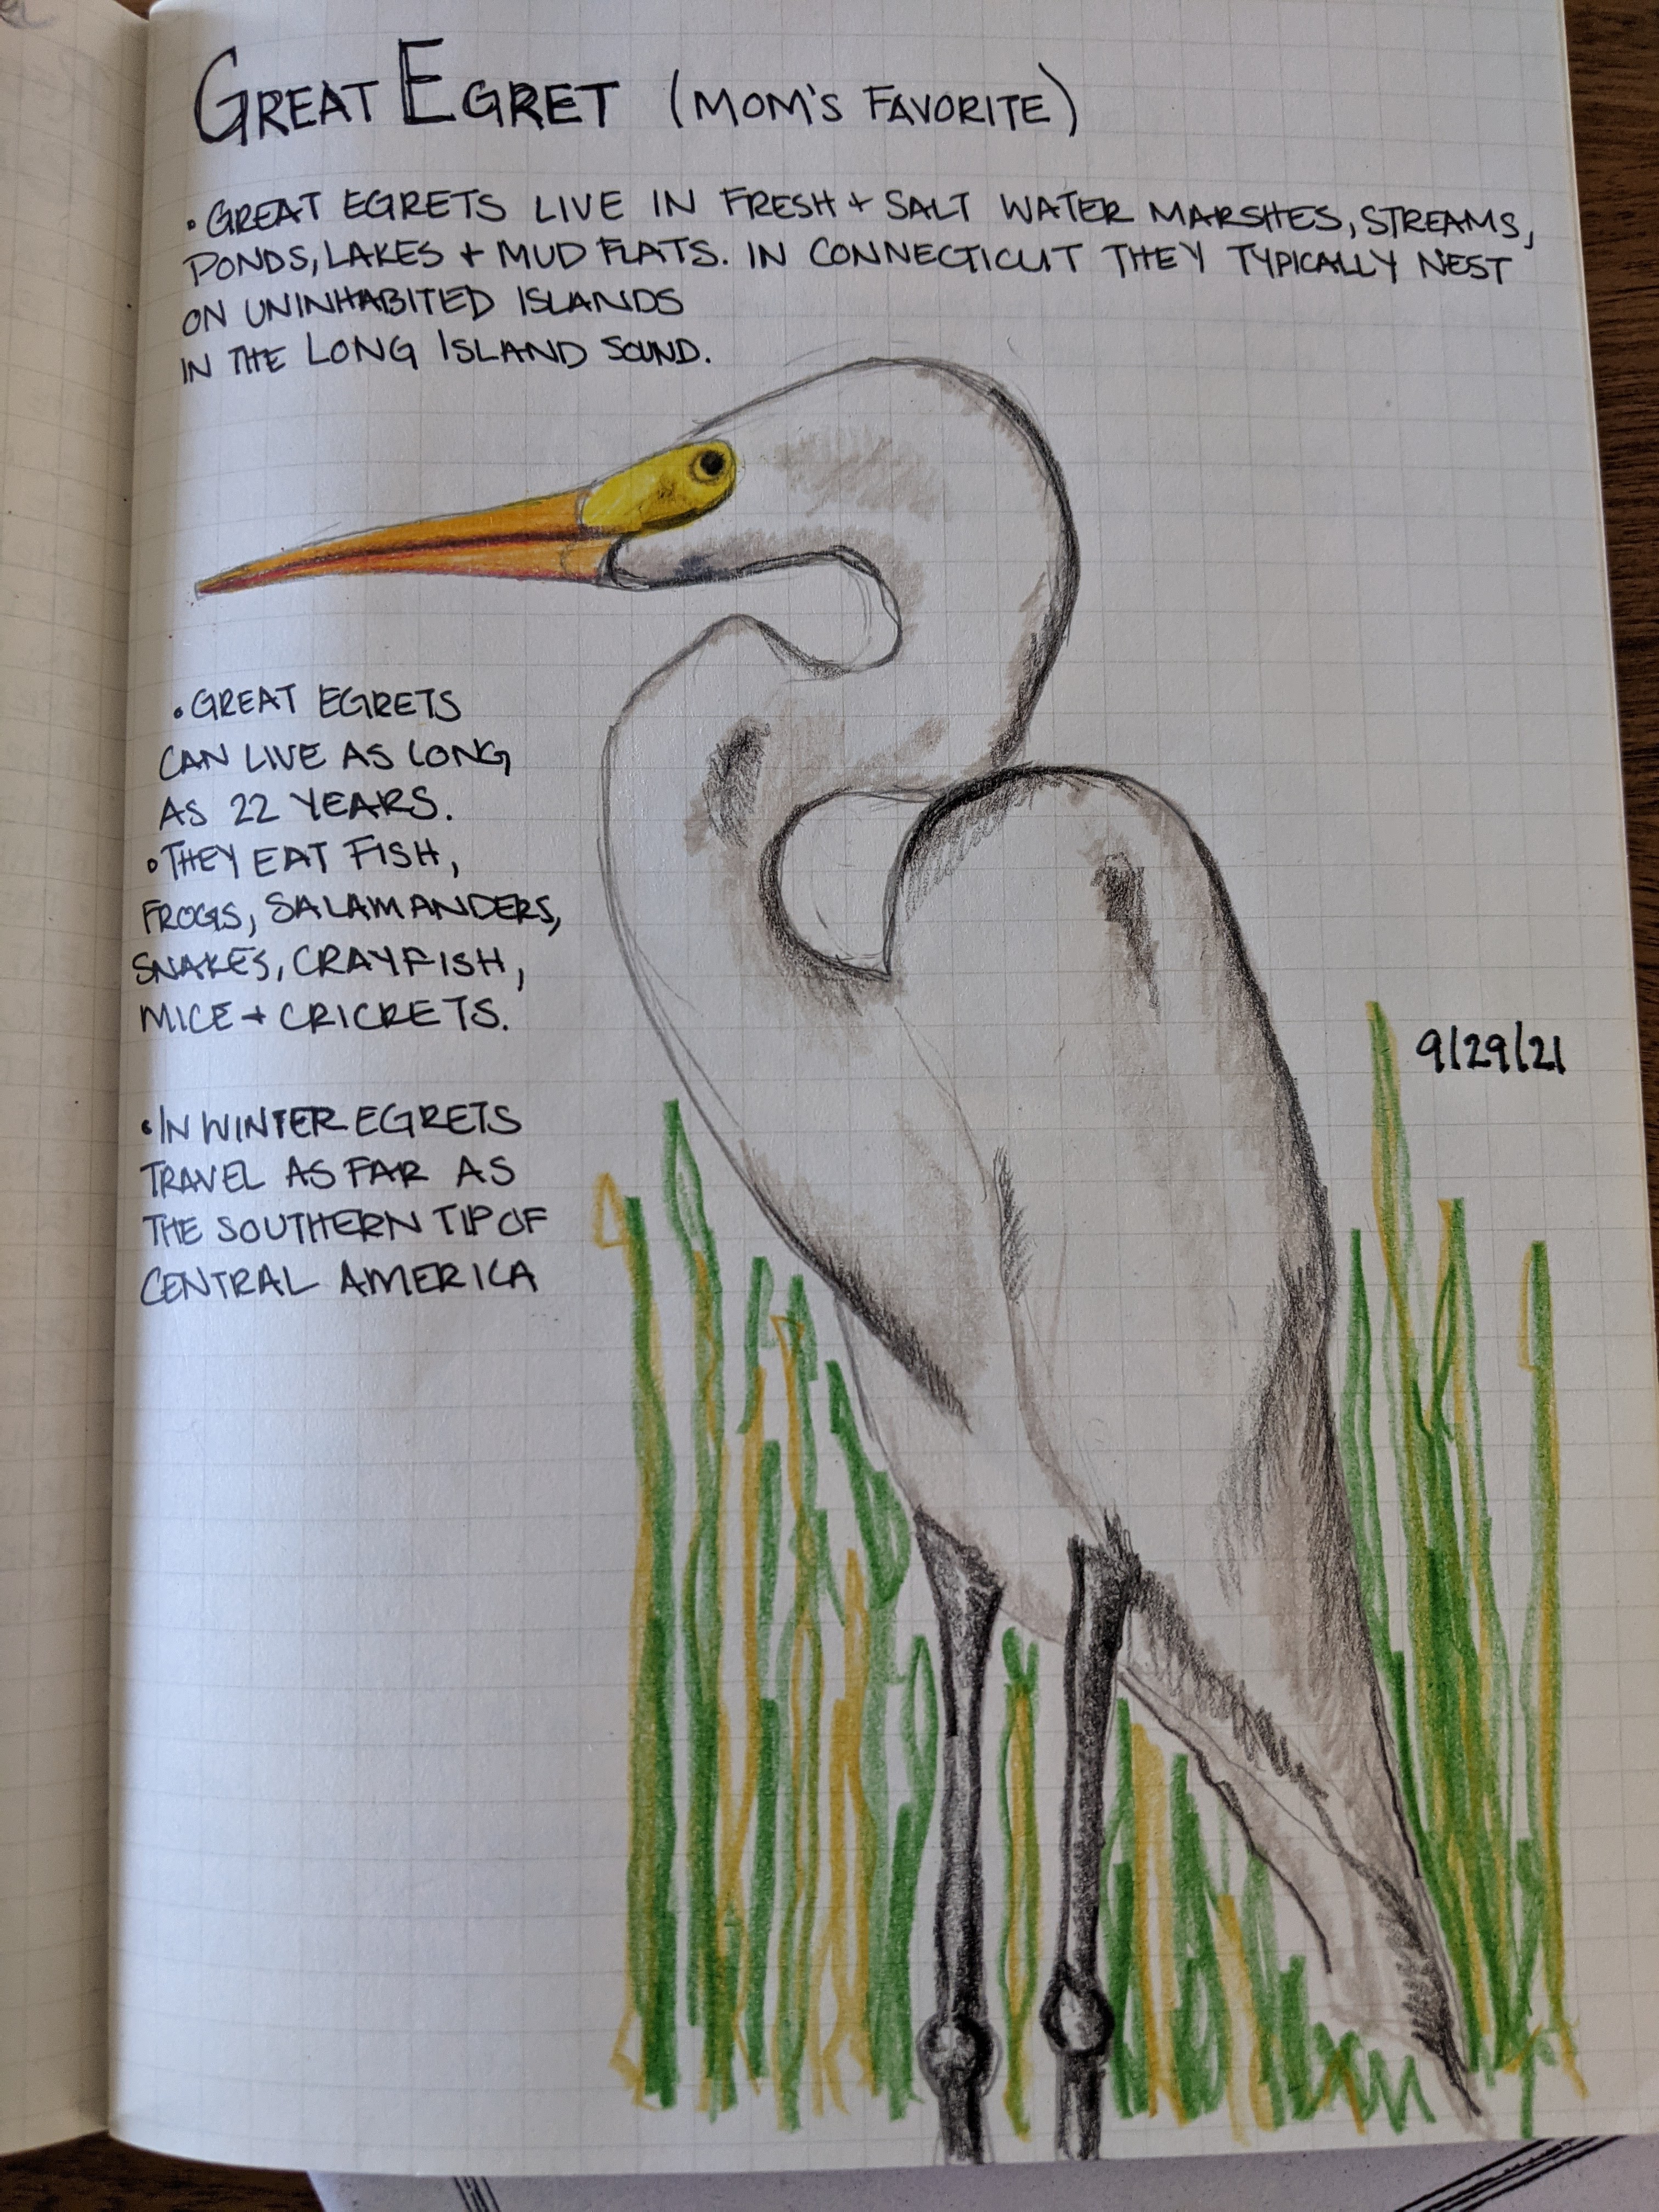 GREAT EGRET (MOM'S FAVORITE)
• GREAT EGRETS LIVE IN FRESH + SALT WATER MARSHES, STREAMS,
PONDS, LAKES + MUD FLATS. IN CONNECTICUT THEY TYPICALLY NEST
ON UNINHABITED ISLANDS
IN THE LONG ISLAND SOUND.
• GREAT EGRETS
CAN LIVE AS LONG
AS 22 YEARS.
• THEY EAT FISH,
FROGS, SALAMANDERS,
SNAKES, CRAYFISH,
MICE + CRICKETS.
9/29/21
• IN WINTER EGRETS
TRAVEL AS FAR AS
THE SOUTHERN TIP OF
CENTRAL AMERICA